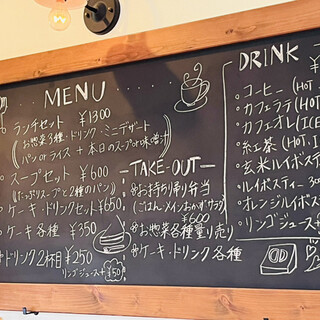 MENU
ランチセット ¥1300
(お惣菜3種・ドリンク・ミニデザート
パンorライス + 本日のスープor味噌汁)
スープセット ¥600
(たっぷりスープと2種のパン)
ケーキ・ドリンクセット ¥650
ケーキ各種 ¥350
ドリンク2杯目 ¥250
リンゴジュース+¥50
-TAKE-OUT-
お持ち帰り弁当
(ごはん・メインおかず・サラダ)
¥600
お惣菜各種量り売り
ケーキ・ドリンク各種
DRINK
・コーヒー (HOT
・カフェラテ (HOT
・カフェオレ (ICE
・紅茶 (HOT
・玄米ルイボス
・ルイボスティー
・オレンジルイボス
・リンゴジュース+